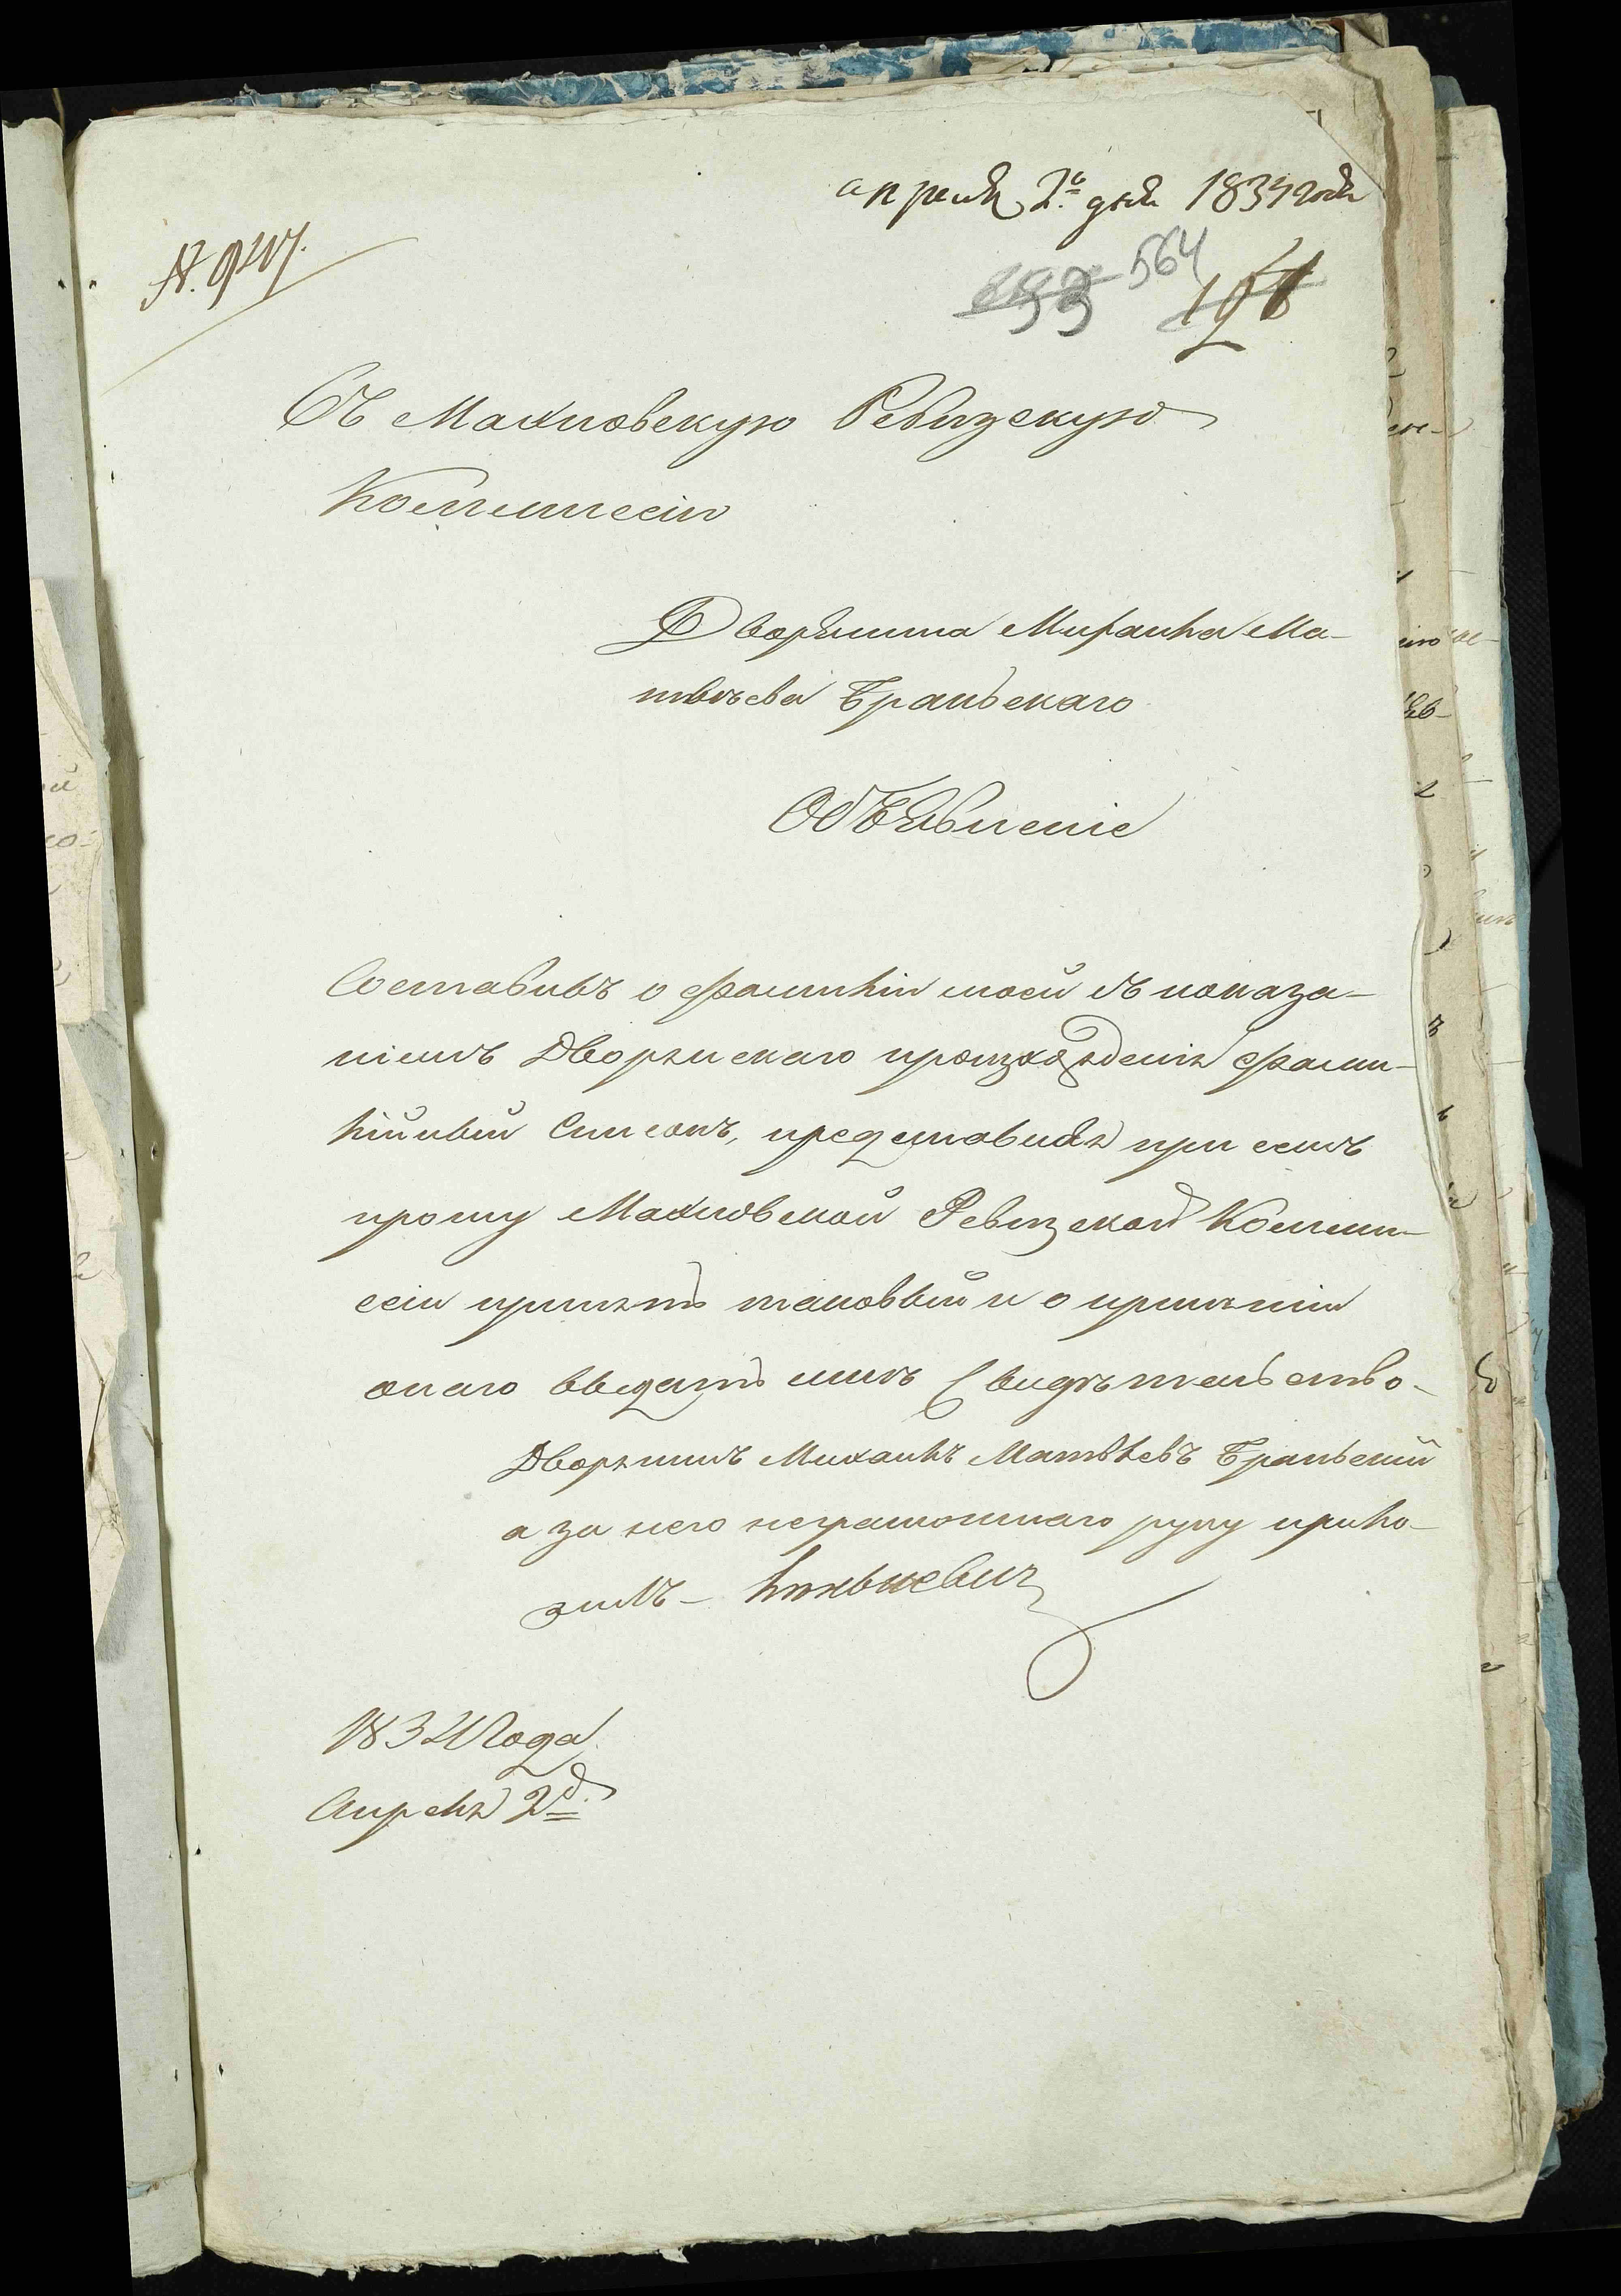 апреля 2го дня 1834 года
564
Въ Махновскую Ревизскую
Коммиссію
Дворянина Михаила Ма-
твѣева Браньскаго
Объявленіе
Составивъ о фамиліи моей съ показа-
ніемъ Дворянскаго произхожденія фами-
лійный Списокъ, представляя при семъ
прошу Махновской Ревизской Комми-
ссіи принять таковый и о принятіи
онаго выдать мнѣ Свидѣтельство-
Дворянинъ Михаилъ Матвѣевъ Браньский
а за него неграмотнаго руку прило-
жилъ-
1834 Года
Апреля 2 д.